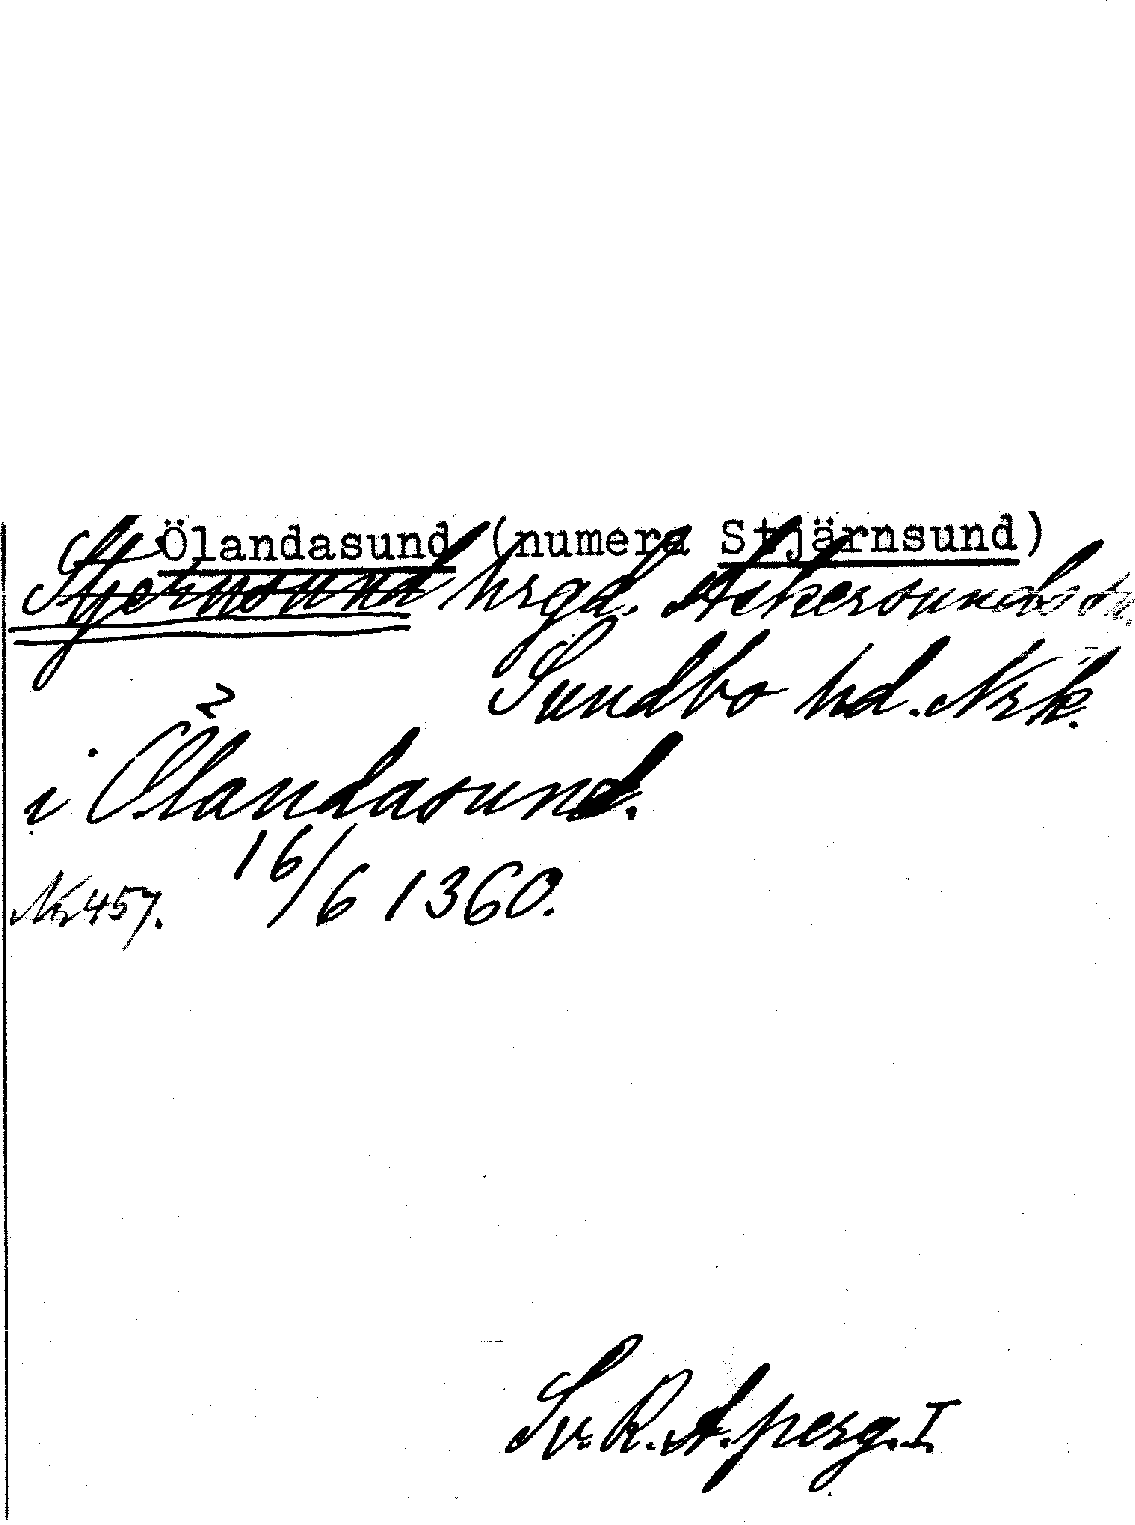 Ölandasund (numera Stjärnsund)
Stjernsund hrgd. Askersunds sn.
Sundbo hd. Nrk.
i Ølandasund.
Nr 457. 16/6 1360.
Sv. R. A. perg. I